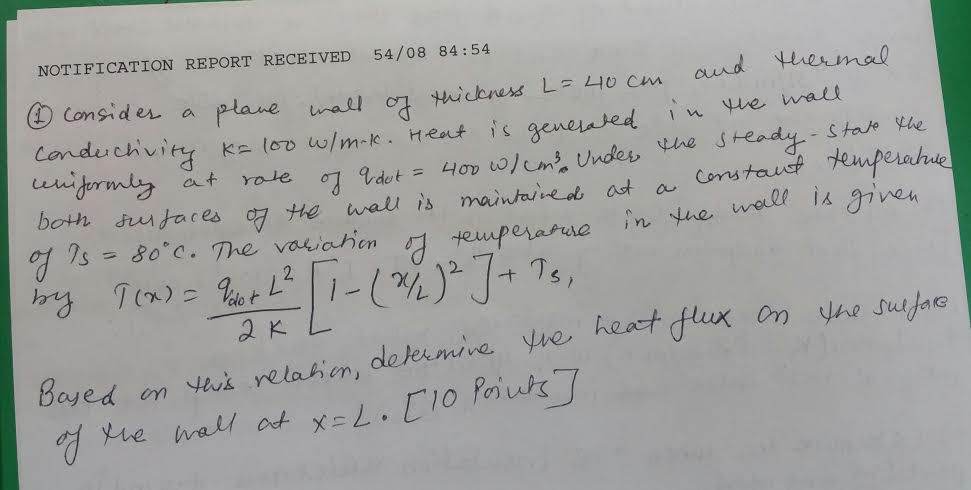 NOTIFICATION REPORT RECEIVED 54/08 84:54
① Consider a plane wall of thickness L = 40 cm and thermal
conductivity K = 100 W/m-K. Heat is generated in the wall
uniformly at rate of q̇dot = 400 W/cm³. Under the steady-state the
both surfaces of the wall is maintained at a constant temperature
of Ts = 80°C. The variation of temperature in the wall is given
by T(x) = qdot L² / 2K [1 - (x/L)²] + Ts,
Based on this relation, determine the heat flux on the surface
of the wall at x = L. [10 Points]